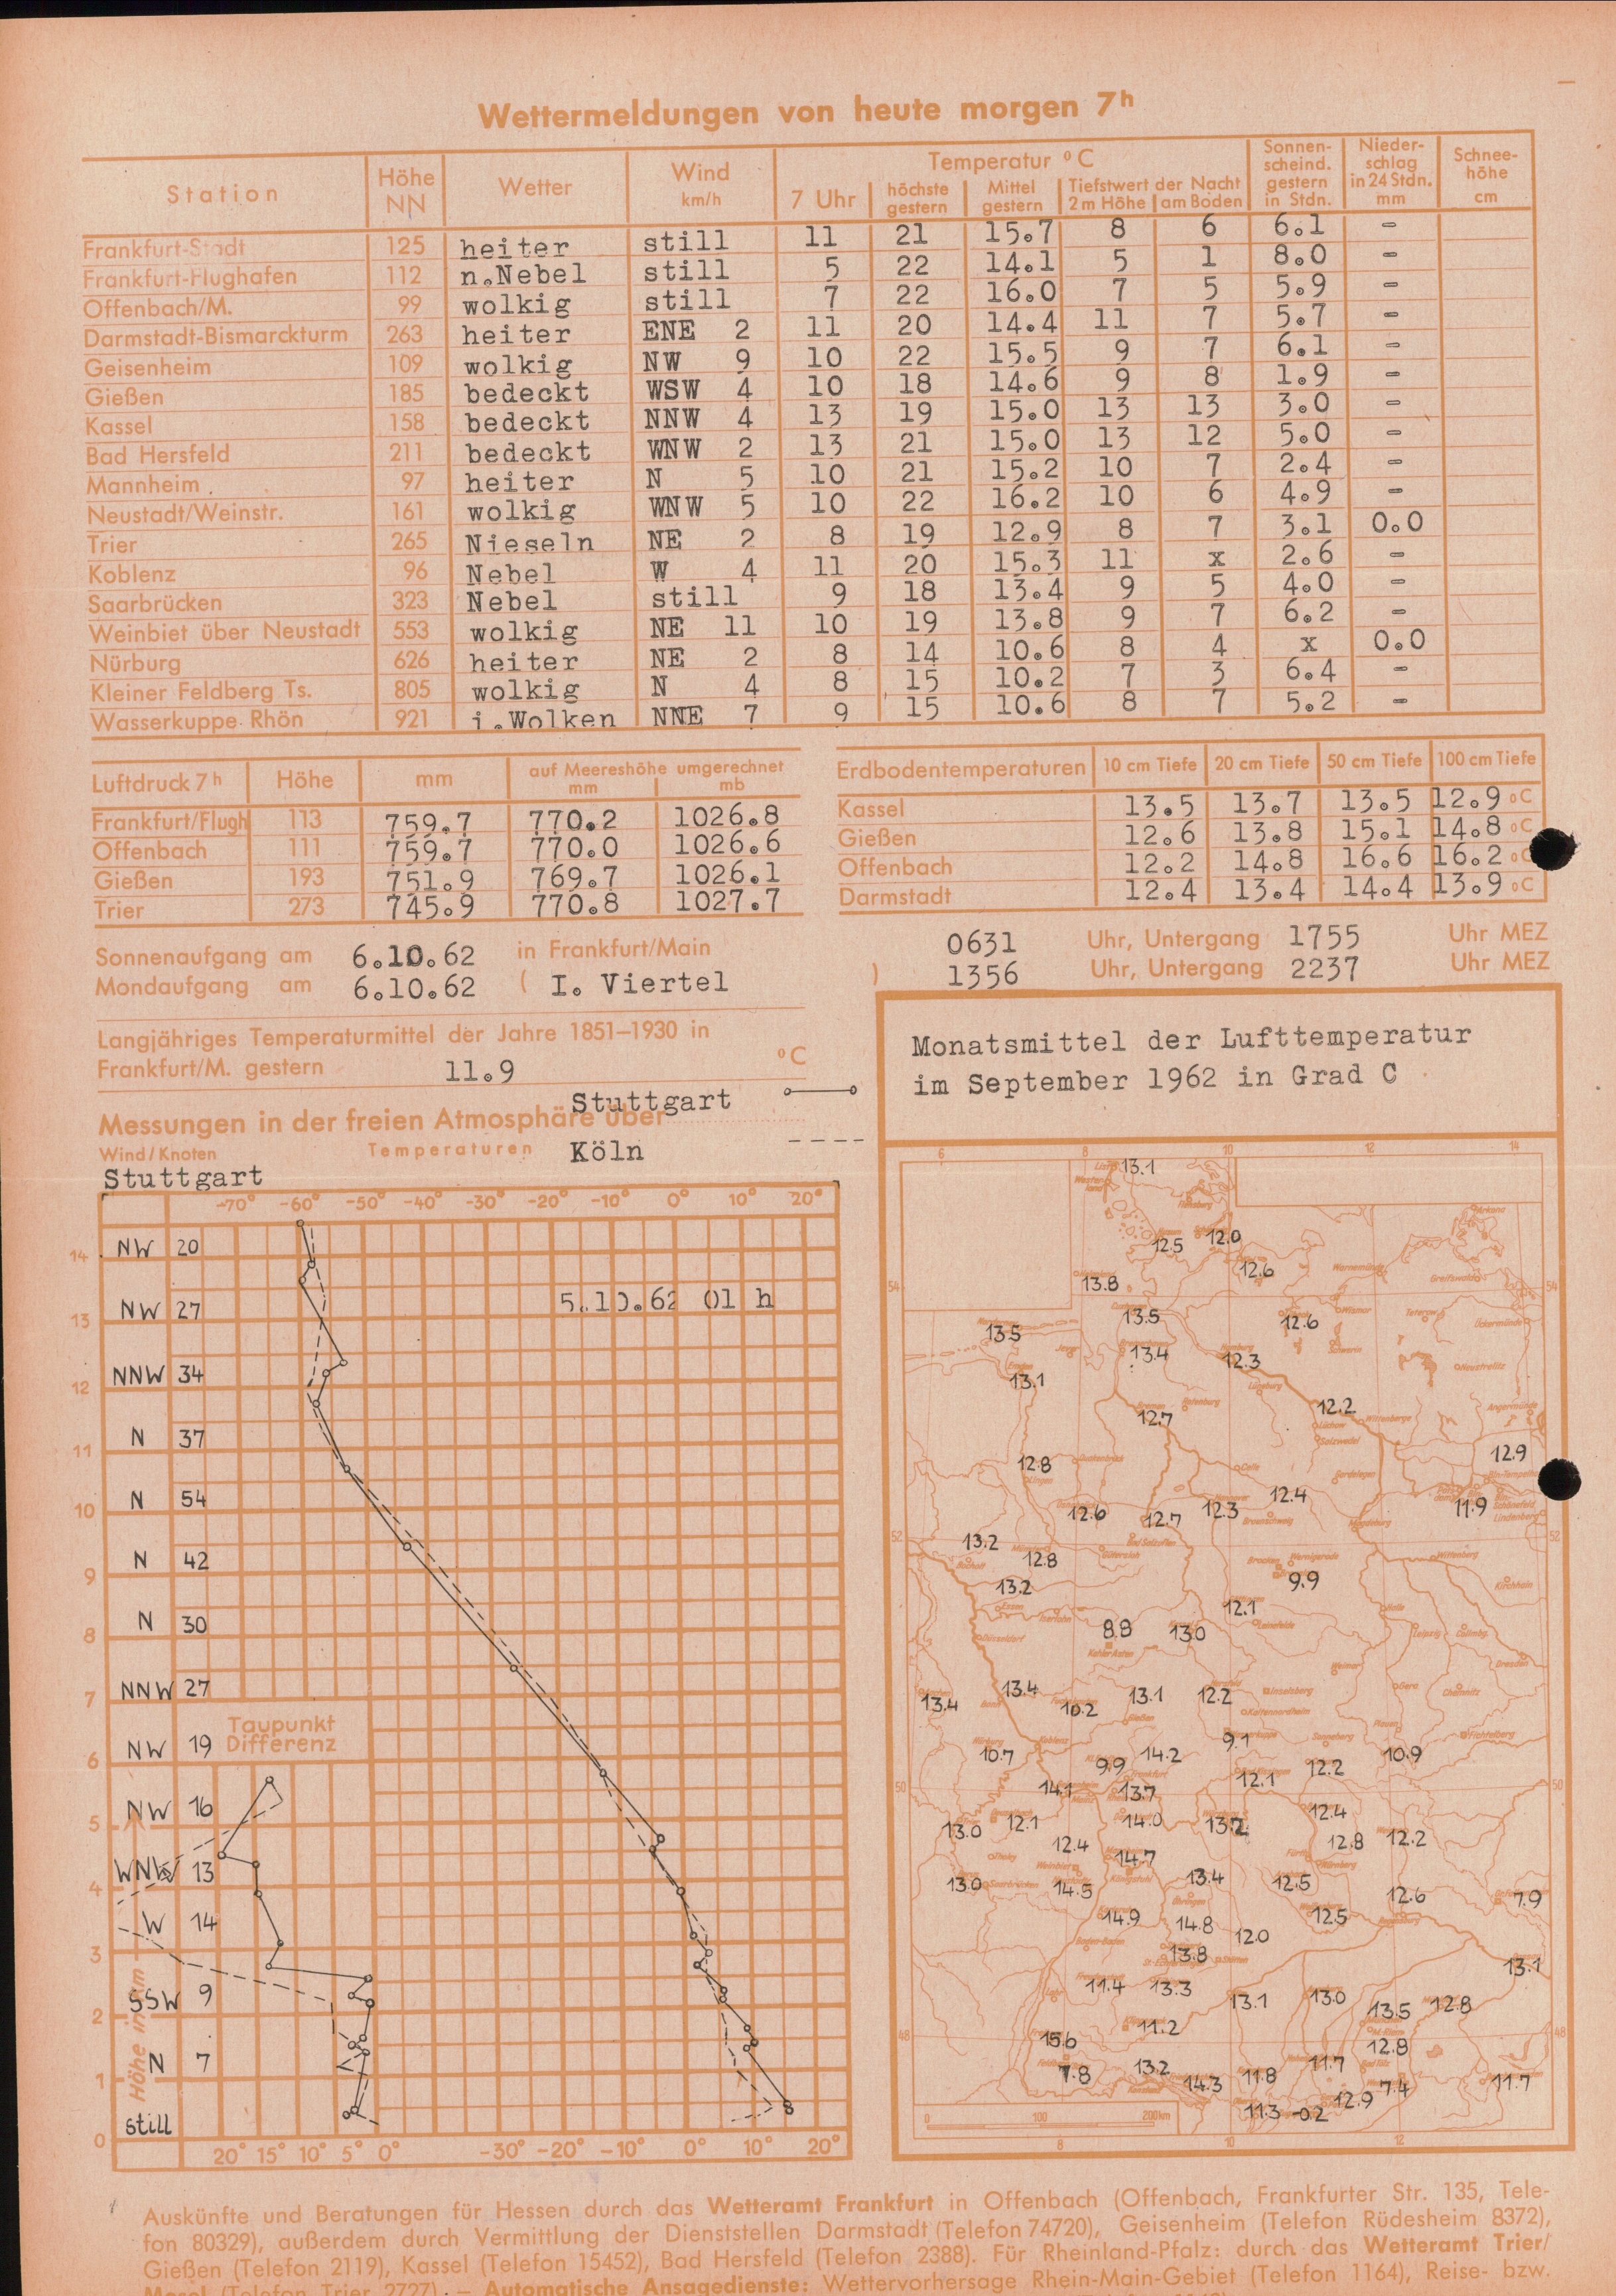 Wettermeldungen von heute morgen 7h
Station Höhe NN Wetter Wind km/h Temperatur °C 7 Uhr höchste gestern Mittel gestern Tiefstwert der Nacht 2 m Höhe am Boden Sonnenscheind. gestern in Stdn. Niederschlag in 24 Stdn. mm Schneehöhe cm
Frankfurt-Stadt 125 heiter still 11 21 15.7 8 6 6.1 -
Frankfurt-Flughafen 112 n.Nebel still 5 22 14.1 5 1 8.0 -
Offenbach/M. 99 wolkig still 7 22 16.0 7 5 5.9 -
Darmstadt-Bismarckturm 263 heiter ENE 2 11 20 14.4 11 7 5.7 -
Geisenheim 109 wolkig NW 9 10 22 15.5 9 7 6.1 -
Gießen 185 bedeckt WSW 4 10 18 14.6 9 8 1.9 -
Kassel 158 bedeckt NNW 4 13 19 15.0 13 13 3.0 -
Bad Hersfeld 211 bedeckt WNW 2 13 21 15.0 13 12 5.0 -
Mannheim 97 heiter N 5 10 21 15.2 10 7 2.4 -
Neustadt/Weinstr. 161 wolkig WNW 5 10 22 16.2 10 6 4.9 -
Trier 265 Nieseln NE 2 8 19 12.9 8 7 3.1 0.0
Koblenz 96 Nebel W 4 11 20 15.3 11 x 2.6 -
Saarbrücken 323 Nebel still 9 18 13.4 9 5 4.0 -
Weinbiet über Neustadt 553 wolkig NE 11 10 19 13.8 9 7 6.2 -
Nürburg 626 heiter NE 2 8 14 10.6 8 4 x 0.0
Kleiner Feldberg Ts. 805 wolkig N 4 8 15 10.2 7 3 6.4 -
Wasserkuppe Rhön 921 i.Wolken NNE 7 9 15 10.6 8 7 5.2 -
Luftdruck 7h Höhe mm auf Meereshöhe umgerechnet mm mb
Frankfurt/Flugh 113 759.7 770.2 1026.8
Offenbach 111 759.7 770.0 1026.6
Gießen 193 751.9 769.7 1026.1
Trier 273 745.9 770.8 1027.7
Erdbodentemperaturen 10 cm Tiefe 20 cm Tiefe 50 cm Tiefe 100 cm Tiefe
Kassel 13.5 13.7 13.5 12.9 °C
Gießen 12.6 13.8 15.1 14.8 °C
Offenbach 12.2 14.8 16.6 16.2 °C
Darmstadt 12.4 13.4 14.4 13.9 °C
Sonnenaufgang am 6.10.62 in Frankfurt/Main 0631 Uhr, Untergang 1755 Uhr MEZ
Mondaufgang am 6.10.62 ( I. Viertel ) 1356 Uhr, Untergang 2237 Uhr MEZ
Langjähriges Temperaturmittel der Jahre 1851–1930 in
Frankfurt/M. gestern 11.9 °C
Messungen in der freien Atmosphäre über Stuttgart
Wind/Knoten Temperaturen Köln
Stuttgart
-70° -60° -50° -40° -30° -20° -10° 0° 10° 20°
14 NW 20
5.10.62 01 h
13 NW 27
12 NNW 34
11 N 37
10 N 54
9 N 42
8 N 30
7 NNW 27
6 NW 19
Taupunkt
Differenz
5 NW 16
4 WNW 13
W 14
3
2 SSW 9
1 N 7
0 still
Höhe in km
20° 15° 10° 5° 0° -30° -20° -10° 0° 10° 20°
Monatsmittel der Lufttemperatur
im September 1962 in Grad C
6 8 10 12 14
13.1
12.5 12.0
12.6
13.8
54 54
13.5 13.5 12.6
13.4 12.3
13.1
12.7 12.2
12.9
12.8
12.4
12.6 12.7 12.3 11.9
52 52
13.2 12.8
13.2 9.9
12.1
8.8 13.0
13.4 13.4 10.2 13.1 12.2
9.1
10.7 9.9 14.2 12.2 10.9
50 50
14.1 13.7 12.1
13.0 12.1 14.0 13.2 12.4
12.4 14.7 12.8 12.2
13.0 14.5 13.4 12.5 12.6 7.9
14.9 14.8 12.0 12.5
13.8 13.1
11.4 13.3 13.1 13.0 13.5 12.8
48 48
15.6 11.2 12.8
7.8 13.2 14.3 11.8 11.7 7.4 11.7
11.3 -0.2 12.9
0 100 200km
8 10 12
Auskünfte und Beratungen für Hessen durch das Wetteramt Frankfurt in Offenbach (Offenbach, Frankfurter Str. 135, Tele-
fon 80329), außerdem durch Vermittlung der Dienststellen Darmstadt (Telefon 74720), Geisenheim (Telefon Rüdesheim 8372),
Gießen (Telefon 2119), Kassel (Telefon 15452), Bad Hersfeld (Telefon 2388). Für Rheinland-Pfalz: durch das Wetteramt Trier/
Mosel (Telefon Trier 2727). — Automatische Ansagedienste: Wettervorhersage Rhein-Main-Gebiet (Telefon 1164), Reise- bzw.